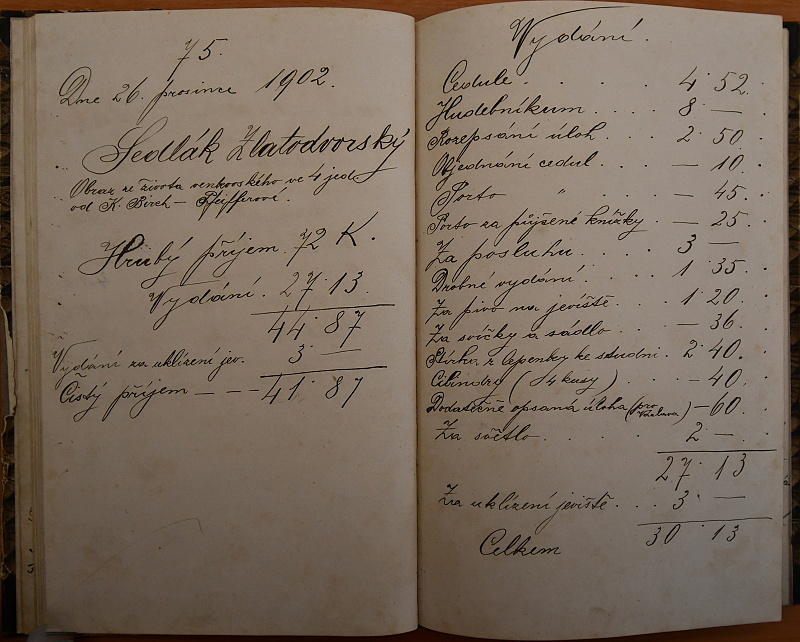 75.
Dne 26. prosince 1902.
Sedlák Zlatodvorský
Obraz ze života venkovského ve 4 jed.
od K. Birch-Pfeifferové.
Hrubý příjem 72 K.
Vydání. 27·13.
44·87
Vydání za uklízení jev. 3 —
Čistý příjem — — — 41·87
Vydání.
Cedule . . . . 4·52.
Hudebníkum . . . . 8 —
Rozepsání úloh . . . 2·50.
Objednání cedul . . . . — 10.
Porto " . . — 45.
Porto za půjčené knížky . — 25.
Za posluhu . . . . 3 —
Drobné vydání . . . . 1·35.
Za pivo na jeviště . . . 1·20.
Za svíčky a sádlo . . . — 36.
z lepenky ke studni . 2·40.
Cilindry (4 kusy) . . . — 40.
Dodatečně opsaná úloha (pro ) — 60.
Za světlo . . . . 2 —
27·13
Za uklízení jeviště . . . 3 —
Celkem 30·13